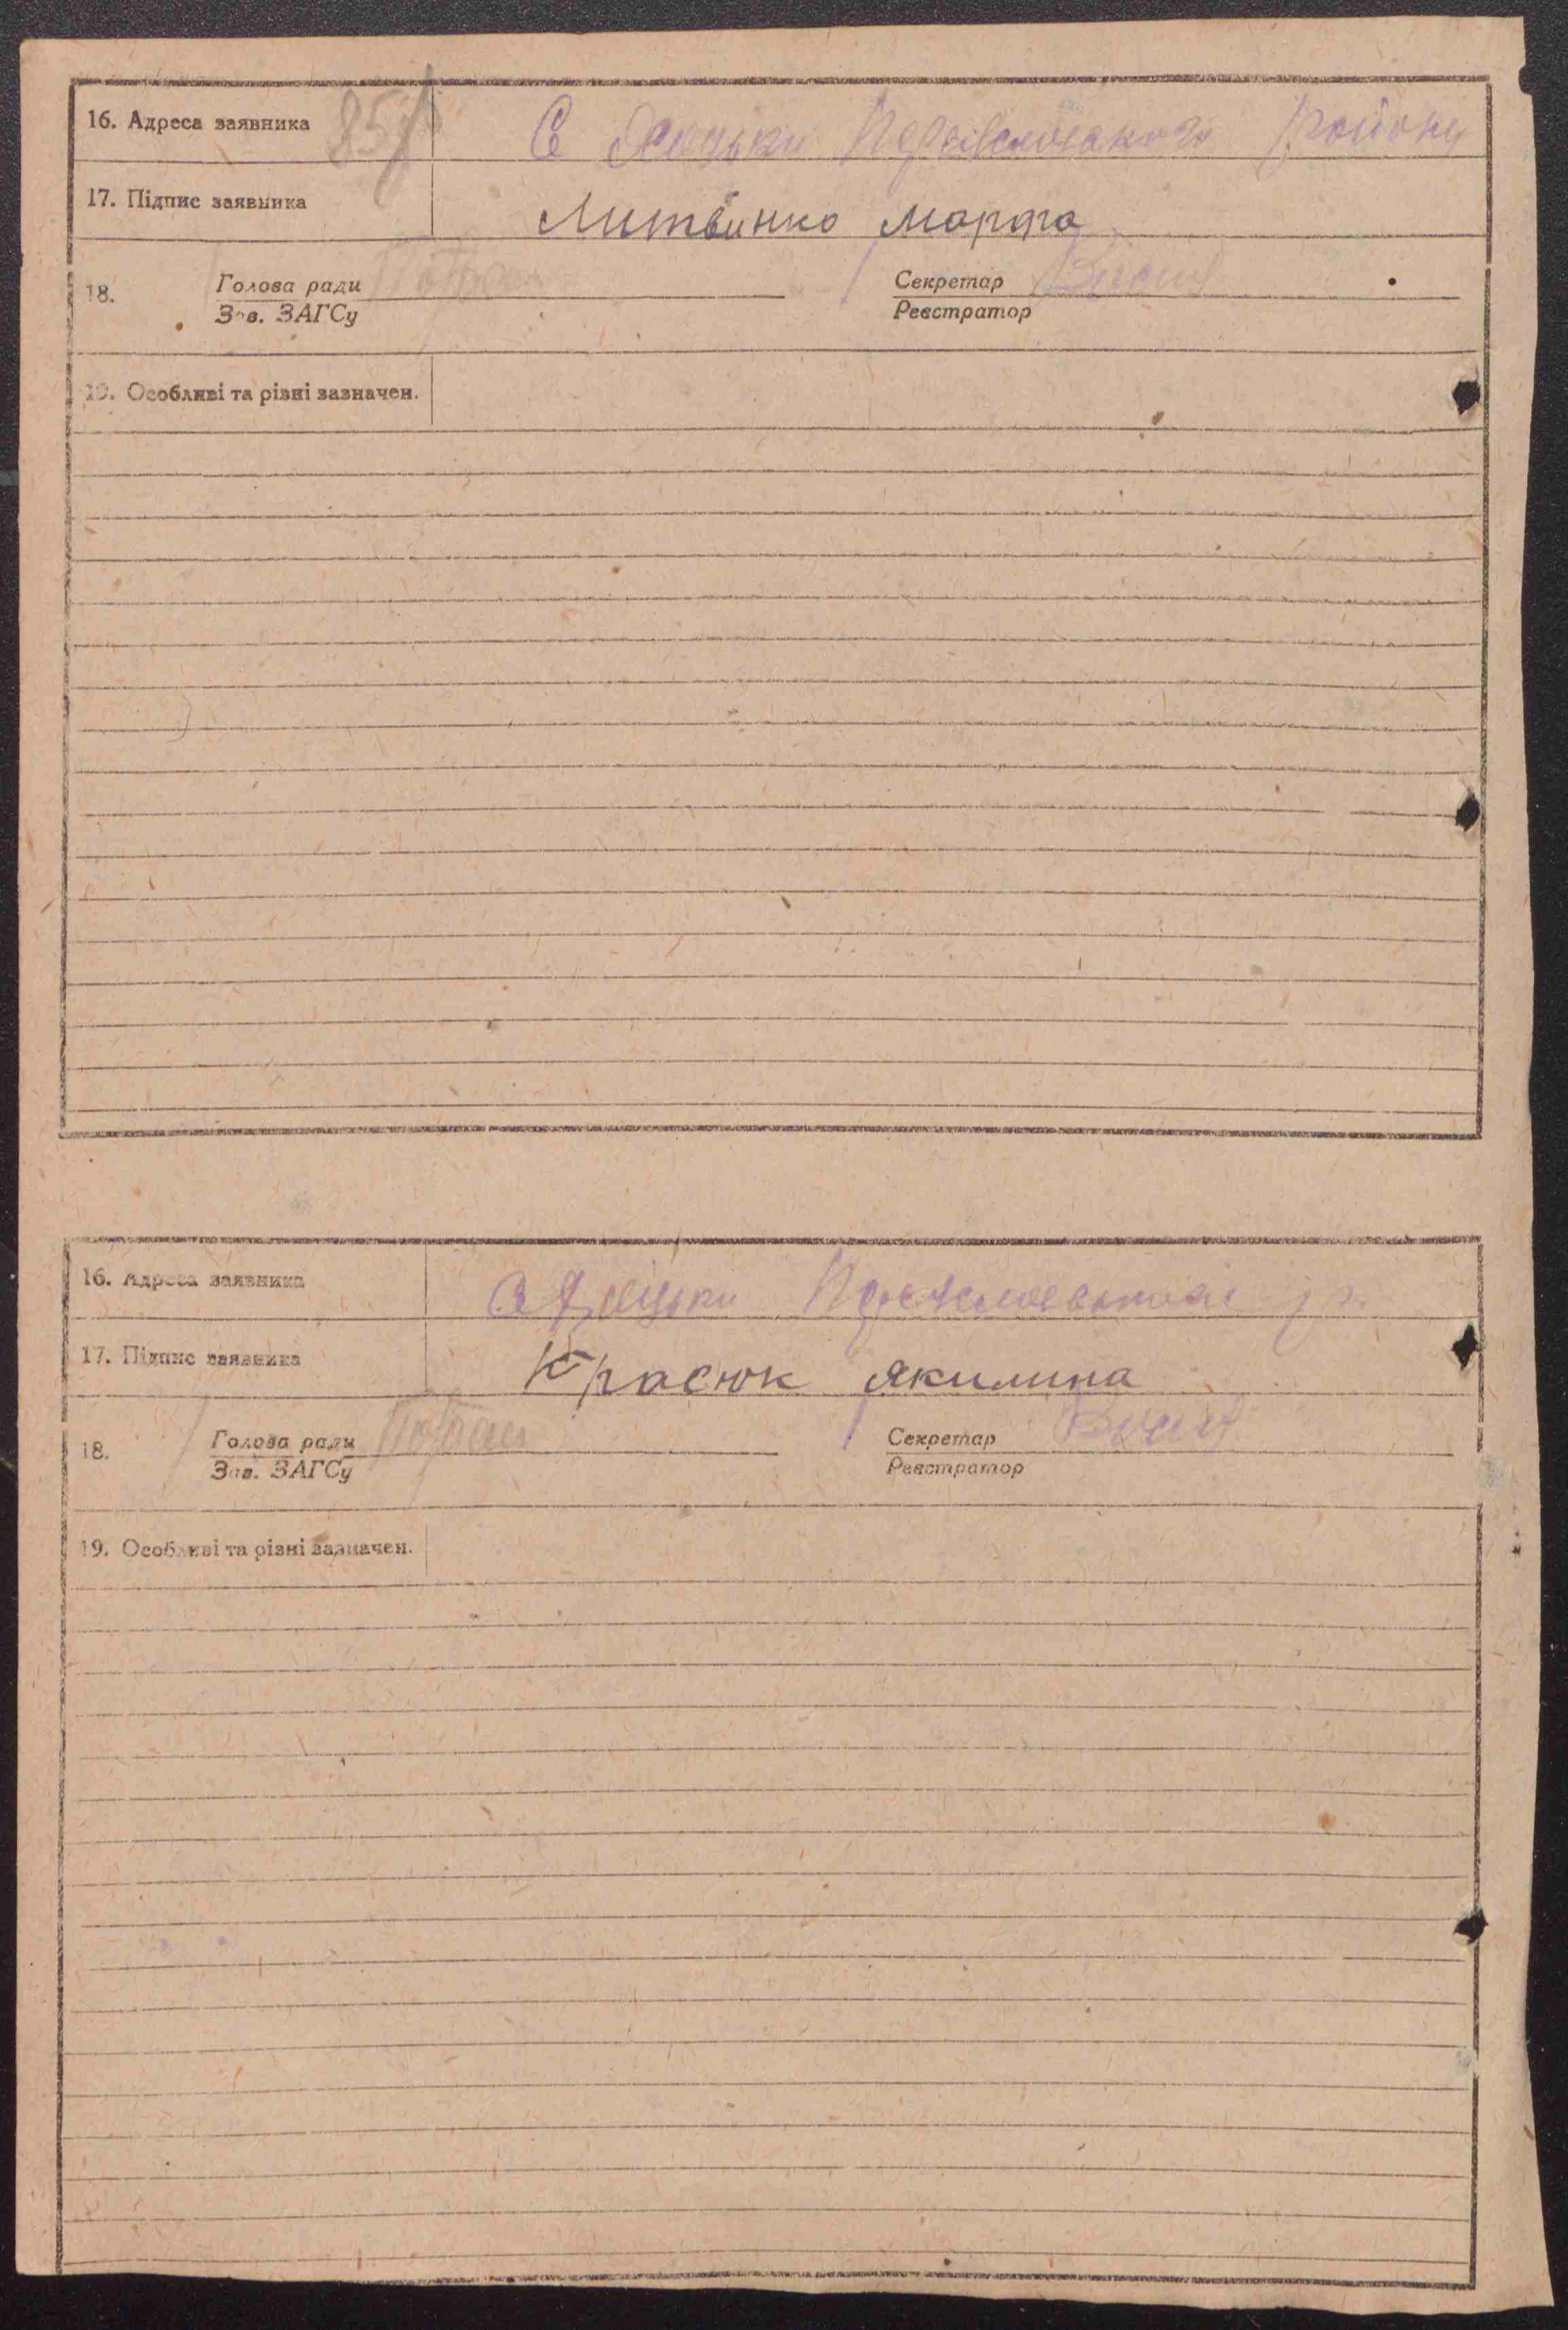 16. Адреса заявника С Хоцьки Переяславського району
17. Підпис заявника Литвинко Марфа
18. Голова ради Секретар
Зав. ЗАГСу Реєстратор
19. Особливі та різні зазначен.
16. Адреса заявника С Хоцьки
17. Підпис заявника Красюк Якилина
18. Голова ради Секретар
Зав. ЗАГСу Реєстратор
19. Особливі та різні зазначен.